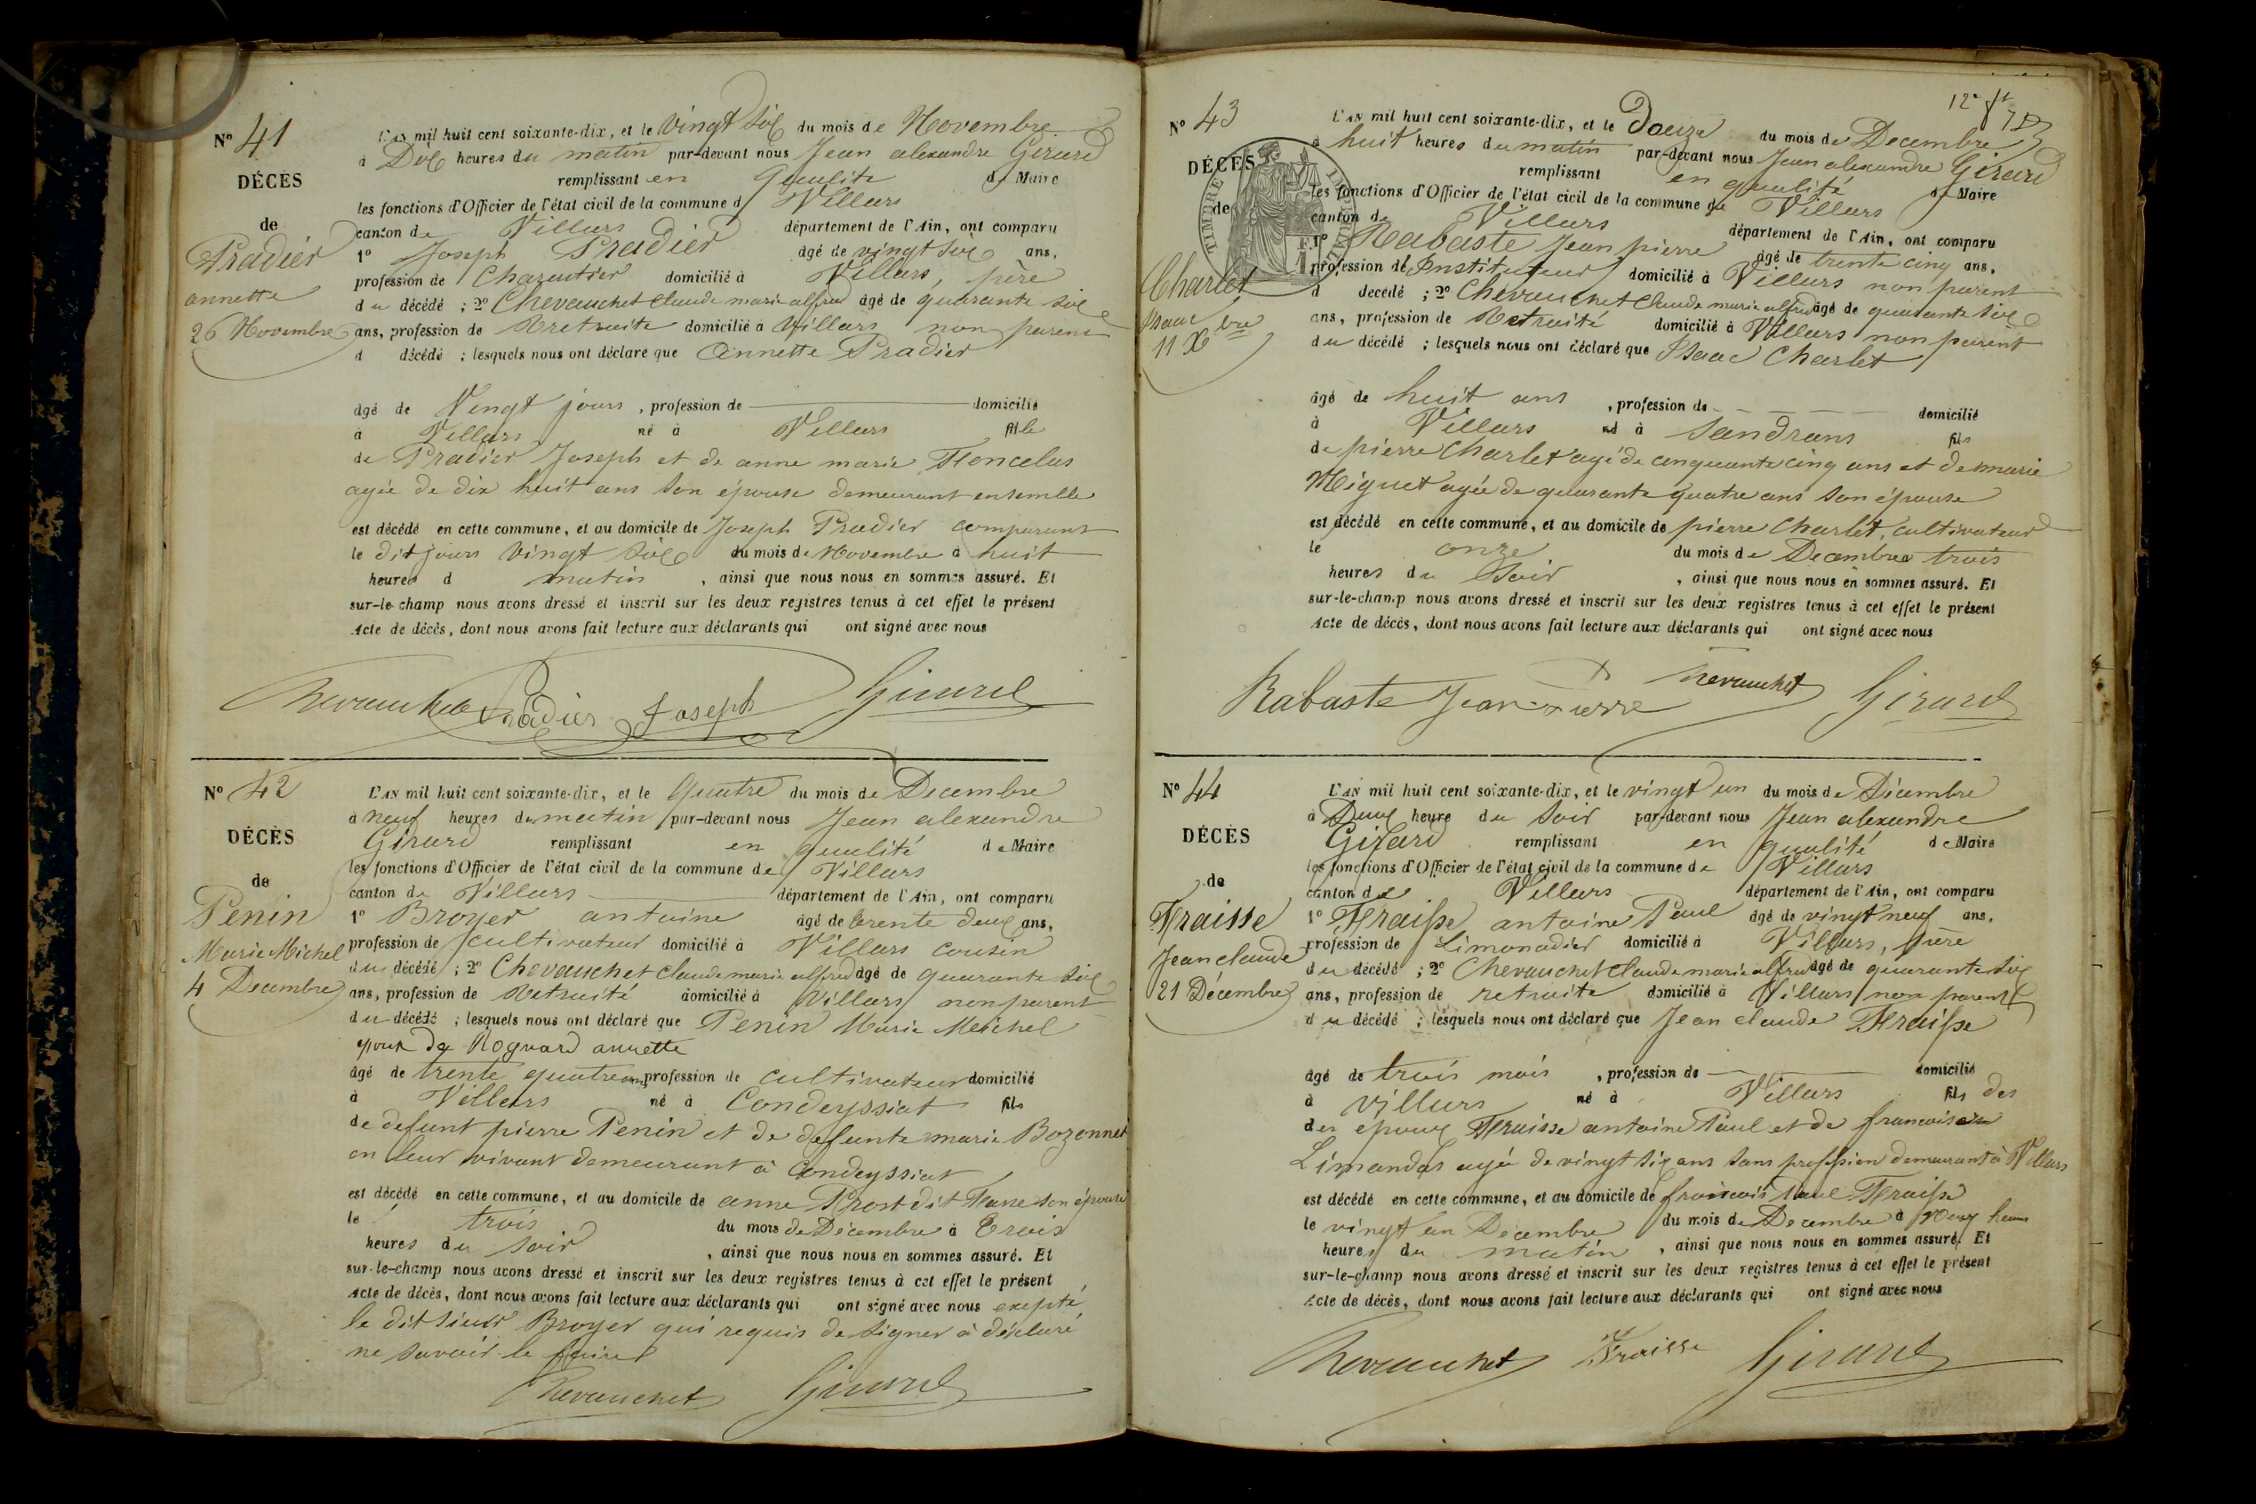 N° 41
DÉCÈS
de
Pradier
annette
26 Novembre
L'AN mil huit cent soixante-dix, et le vingt six du mois de Novembre
à Dix heures du matin par-devant nous Jean alexandre Girard
remplissant en qualité de Maire
les fonctions d'Officier de l'état civil de la commune d Villars
canton de Villars département de l'Ain, ont comparu
1° Joseph Pradier âgé de vingt six ans,
profession de Charentier domicilié à Villars, père
du décédé ; 2° Chevauchet Claude marie alfred âgé de quarante six
ans, profession de Retraite domicilié à Villars non parent
d décédé ; lesquels nous ont déclaré que Annette Pradier
âgé de Vingt jours , profession de domicilié
à Villars né à Villars fille
de Pradier Joseph et de anne marie
agée de dix huit ans son épouse demeurant ensemble
est décédé en cette commune, et au domicile de Joseph Pradier comparant
le dit jours vingt six du mois de Novembre à huit
heures d matin , ainsi que nous nous en sommes assuré. Et
sur-le-champ nous avons dressé et inscrit sur les deux registres tenus à cet effet le présent
Acte de décès, dont nous avons fait lecture aux déclarants qui ont signé avec nous
Chevauchet Pradier Joseph Girard
N° 42
DÉCÈS
de
Penin
Marie Michel
4 Decembre
L'AN mil huit cent soixante-dix, et le Quatre du mois de Decembre
à neuf heures du matin par-devant nous Jean alexandre
Girard remplissant en qualité de Maire
les fonctions d'Officier de l'état civil de la commune de Villars
canton de Villars département de l'Ain, ont comparu
1° Broyer antoine âgé de trente deux ans,
profession de cultivateur domicilié à Villars cousin
du décédé ; 2° Chevauchet Claude marie alfred âgé de quarante six
ans, profession de Retraité domicilié à Villars non parent
du décédé ; lesquels nous ont déclaré que Penin Marie Meichel
époux de Roguard annette
âgé de trente quatre ans profession de cultivateur domicilié
à Villars né à Condeyssiat fils
de defunt pierre Penin et de defunte marie Bozonnet
en leur vivant demeurant à Condeyssiat
est décédé en cette commune, et au domicile de anne Prost dit son épouse
le trois du mois de Décembre à Trois
heures du soir , ainsi que nous nous en sommes assuré. Et
sur-le-champ nous avons dressé et inscrit sur les deux registres tenus à cet effet le présent
Acte de décès, dont nous avons fait lecture aux déclarants qui ont signé avec nous exepté
le dit sieur Broyer qui requis de signer à déclaré
ne savoir le faire
Chevauchet Girard
12e ft
N° 43
DÉCÈS
de
Charlet
Isaac
11 Xbre
TIMBRE IMPÉRIAL
L'AN mil huit cent soixante-dix, et le Douze du mois de Decembre
à huit heures du matin par-devant nous Jean alexandre Girard
remplissant en qualité de Maire
les fonctions d'Officier de l'état civil de la commune de Villars
canton de Villars département de l'Ain, ont comparu
1° Rabaste Jean pierre âgé de trente cinq ans,
profession de Instituteur domicilié à Villars non parent
d décédé ; 2° Chevauchet Claude marie alfred âgé de quarante six
ans, profession de Retraité domicilié à Villars non parent
du décédé ; lesquels nous ont déclaré que Isaac Charlet
âgé de huit ans , profession de domicilié
à Villars né à Sandrans fils
de pierre Charlet agé de cinquante cinq ans et de marie
Miguet agée de quarante quatre ans son épouse
est décédé en cette commune, et au domicile de pierre Charlet, cultivateur
le onze du mois de Decembre trois
heures du Soir , ainsi que nous nous en sommes assuré. Et
sur-le-champ nous avons dressé et inscrit sur les deux registres tenus à cet effet le présent
Acte de décès, dont nous avons fait lecture aux déclarants qui ont signé avec nous
Rabaste Jean pierre Chevauchet Girard
N° 44
DÉCÈS
de
Fraisse
Jean claude
21 Décembre
L'AN mil huit cent soixante-dix, et le vingt un du mois de Décembre
à Deux heure du Soir par-devant nous Jean alexandre
Girard remplissant en qualité de Maire
les fonctions d'Officier de l'état civil de la commune de Villars
canton de Villars département de l'Ain, ont comparu
1° Fraisse antoine Paul âgé de vingt neuf ans,
profession de Limonadier domicilié à Villars, père
du décédé ; 2° Chevauchet Claude marie alfred âgé de quarante six
ans, profession de retraite domicilié à Villars non parent
du décédé ; lesquels nous ont déclaré que Jean claude Fraisse
âgé de trois mois , profession de domicilié
à Villars né à Villars fils des
des epoux Fraisse antoine Paul et de francoise
Limandas agée de vingt six ans sans profession demeurant à Villars
est décédé en cette commune, et au domicile de francois Paul Fraisse
le vingt un Décembre du mois de Decembre à Neuf heures
heures du matin , ainsi que nous nous en sommes assuré. Et
sur-le-champ nous avons dressé et inscrit sur les deux registres tenus à cet effet le présent
Acte de décès, dont nous avons fait lecture aux déclarants qui ont signé avec nous
Chevauchet Fraisse Girard